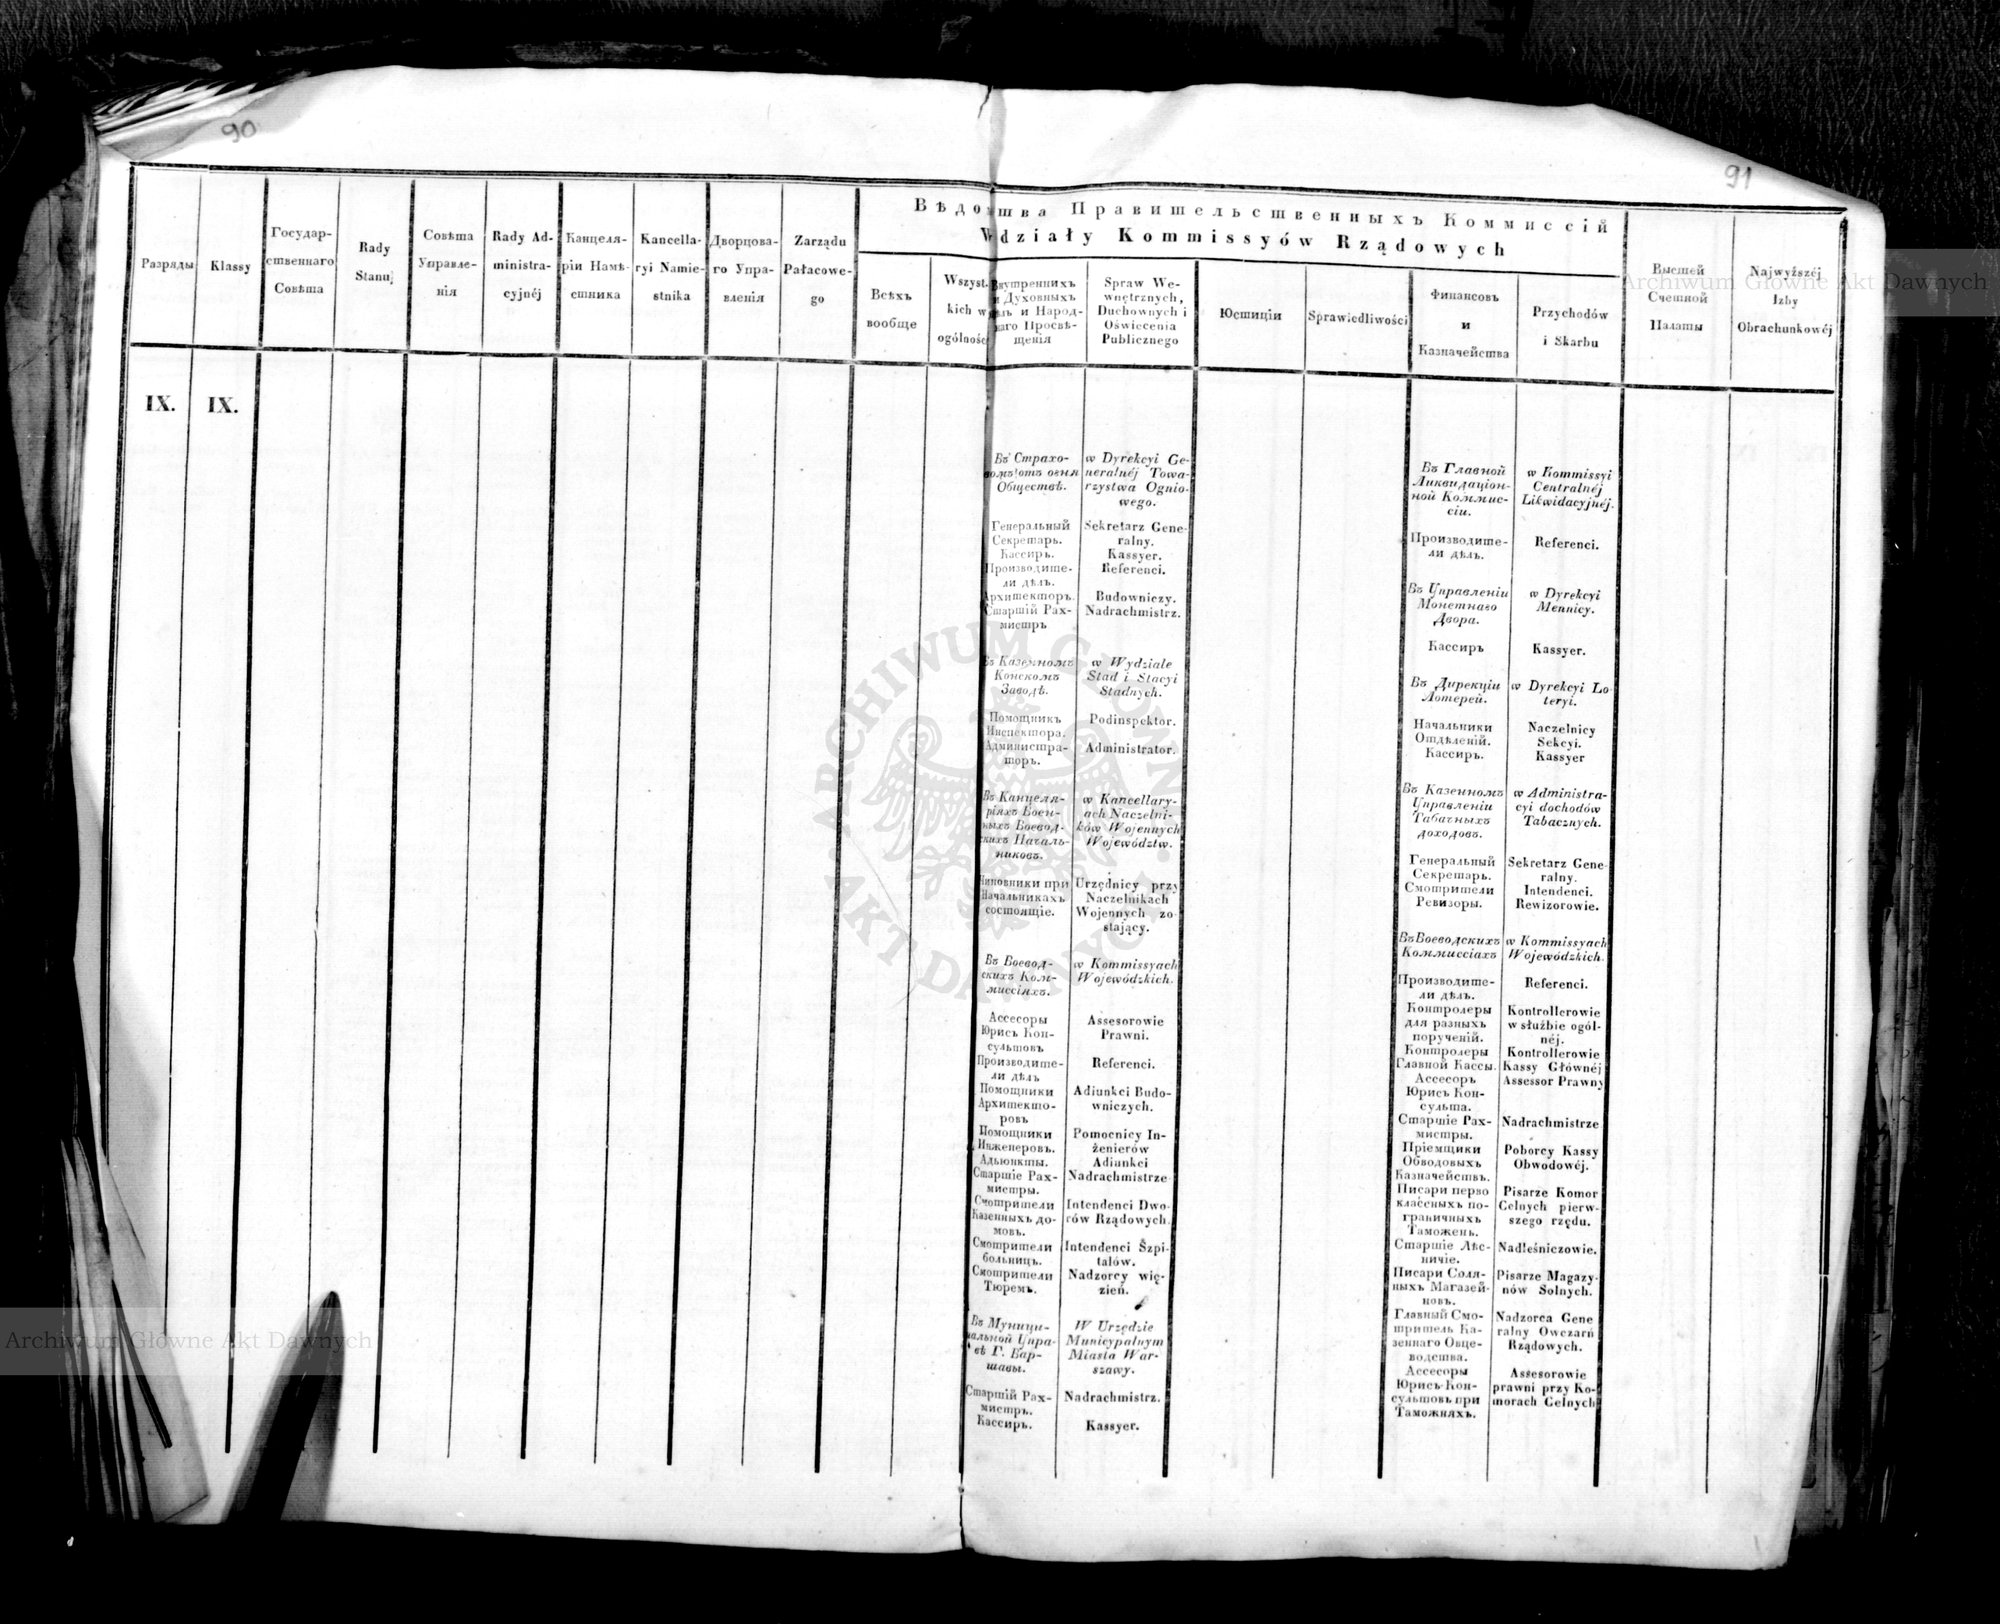 90
91
Вѣдомства Правительственныхъ Коммиссій
Wdziały Kommissyów Rządowych
Разряды
Klassy
Государ-
ственнаго
Совѣта
Rady
Stanu
Совѣта
Управле-
нія
Rady Ad-
ministra-
cyjnéj
Канцеля-
ріи Намѣ-
стника
Kancella-
ryi Namie-
stnika
Дворцова-
го Упра-
вленія
Zarządu
Pałacowe-
go
Всѣхъ
вообще
Wszyst-
kich w
ogólności
Внутреннихъ
и Духовныхъ
дѣлъ и Народ-
наго Просвѣ-
щенія
Spraw We-
wnętrznych,
Duchownych i
Oświecenia
Publicznego
Юстиціи
Sprawiedliwości
Финансовъ
и
Казначейства
Przychodów
i Skarbu
Высшей
Счетной
Палаты
Najwyższéj
Izby
Obrachunkowéj
IX.
IX.
Въ Страхо-
вомъ отъ огня
Обществѣ.
Генеральный
Секретарь.
Кассиръ.
Производите-
ли дѣлъ.
Архитекторъ.
Старшій Рах-
мистръ
Въ Казенномъ
Конскомъ
Заводѣ.
Помощникъ
Инспектора.
Администра-
торъ.
Въ Канцеля-
ріяхъ Воен-
ныхъ Воевод-
скихъ Началь-
никовъ.
Чиновники при
Начальникахъ
состоящіе.
Въ Воевод-
скихъ Ком-
миссіяхъ.
Ассесоры
Юрисъ Кон-
сультовъ
Производите-
ли дѣлъ
Помощники
Архитекто-
ровъ
Помощники
Инженеровъ.
Адьюнкты.
Старшіе Рах-
мистры.
Смотрители
Казенныхъ до-
мовъ.
Смотрители
больницъ.
Смотрители
Тюремъ.
Въ Муници-
пальной Упра-
вѣ Г. Вар-
шавы.
Старшій Рах-
мистръ.
Кассиръ.
w Dyrekcyi Ge-
neralnéj Towa-
rzystwa Ognio-
wego.
Sekretarz Gene-
ralny.
Kassyer.
Referenci.
Budowniczy.
Nadrachmistrz.
w Wydziale
Stad i Stacyi
Stadnych.
Podinspektor.
Administrator.
w Kancellary-
ach Naczelni-
ków Wojennych
Województw.
Urzędnicy przy
Naczelnikach
Wojennych zo-
stający.
w Kommissyach
Wojewódzkich.
Assesorowie
Prawni.
Referenci.
Adiunkci Budo-
wniczych.
Pomocnicy In-
żenierów
Adiunkci
Nadrachmistrze
Intendenci Dwo-
rów Rządowych.
Intendenci Szpi-
talów.
Nadzorcy wię-
zień.
W Urzędzie
Municypalnym
Miasta War-
szawy.
Nadrachmistrz.
Kassyer.
Въ Главной
Ликвидаціон-
ной Коммис-
сіи.
Производите-
ли дѣлъ.
Въ Управленіи
Монетнаго
Двора.
Кассиръ
Въ Дирекціи
Лотерей.
Начальники
Отдѣленій.
Кассиръ.
Въ Казенномъ
Управленіи
Табачныхъ
доходовъ.
Генеральный
Секретарь.
Смотрители
Ревизоры.
Въ Воеводскихъ
Коммиссіахъ
Производите-
ли дѣлъ.
Контролеры
для разныхъ
порученій.
Контролеры
Главной Кассы.
Ассесоръ
Юрисъ Кон-
сульта.
Старшіе Рах-
мистры.
Пріемщики
Обводовыхъ
Казначействъ.
Писари перво
классныхъ по-
граничныхъ
Таможень.
Старшіе Лѣс-
ничіе.
Писари Соля-
ныхъ Магазей-
новъ.
Главный Смо-
тритель Ка-
зеннаго Овце-
водства.
Ассесоры
Юрисъ Кон-
сультовъ при
Таможняхъ.
w Kommissyi
Centralnéj
Likwidacyjnéj.
Referenci.
w Dyrekcyi
Mennicy.
Kassyer.
w Dyrekcyi Lo-
teryi.
Naczelnicy
Sekcyi.
Kassyer
w Administra-
cyi dochodów
Tabacznych.
Sekretarz Gene-
ralny.
Intendenci.
Rewizorowie.
w Kommissyach
Wojewódzkich.
Referenci.
Kontrollerowie
w służbie ogól-
néj.
Kontrollerowie
Kassy Głównéj
Assessor Prawny
Nadrachmistrze
Poborcy Kassy
Obwodowéj.
Pisarze Komor
Celnych pierw-
szego rzędu.
Nadleśniczowie.
Pisarze Magazy-
nów Solnych.
Nadzorca Gene
ralny Owczarń
Rządowych.
Assesorowie
prawni przy Ko-
morach Celnych
Archiwum Główne Akt Dawnych
Archiwum Główne Akt Dawnych
ARCHIWUM GŁÓWNE
AKT DAWNYCH